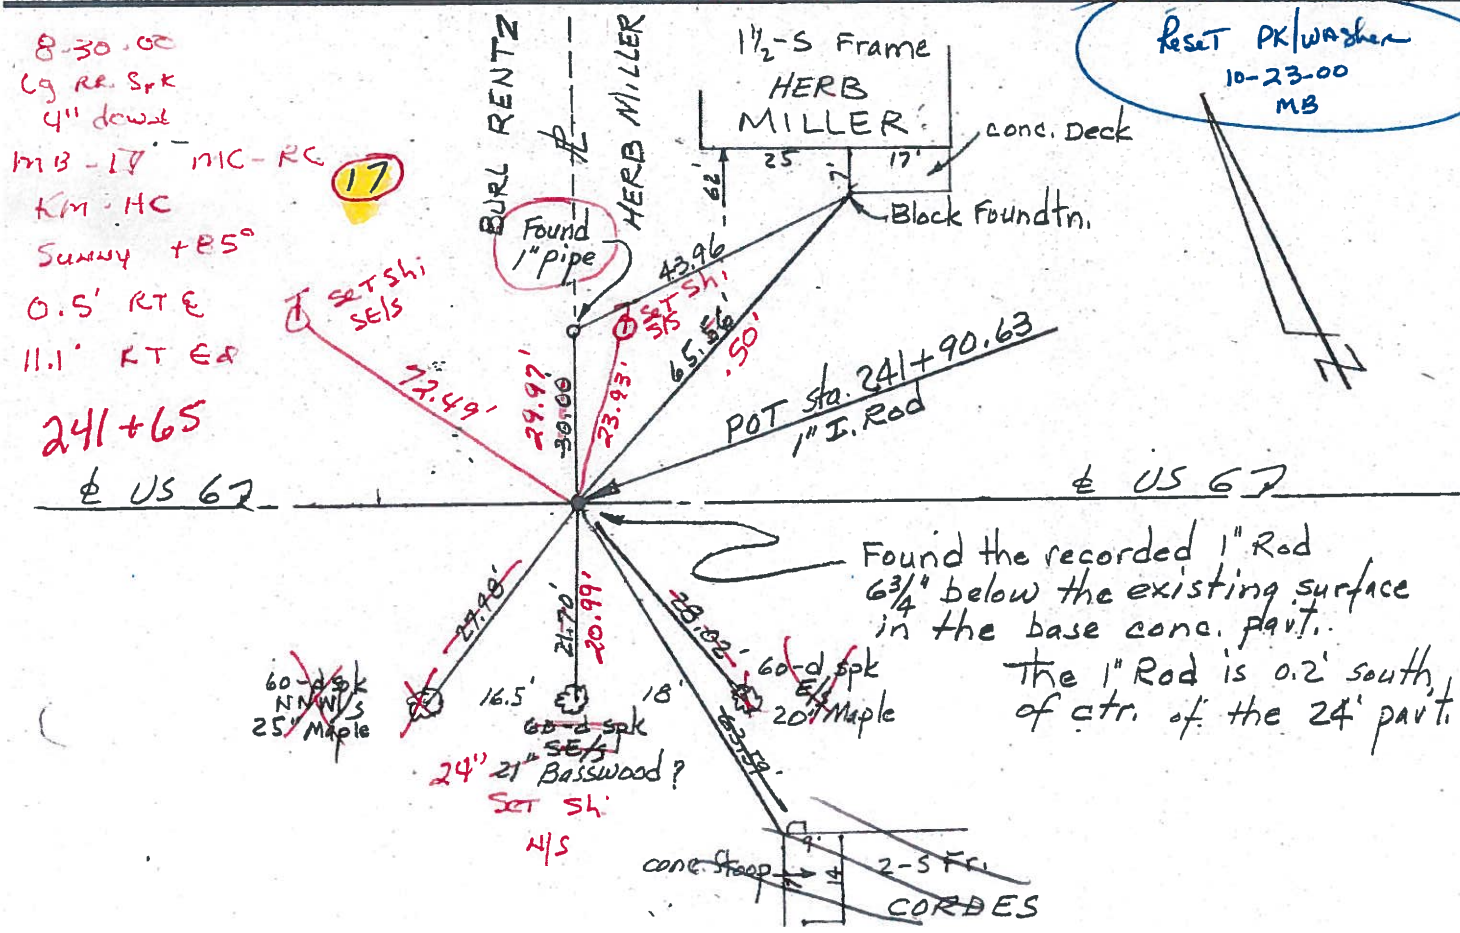 8-30-00
Lg RR. Spk
4" down
MB - 17 MC - RC
KM - HC
Sunny +85°
0.5' RT ⅊
11.1' RT Ed
241+65
17
BURL RENTZ
⅊
HERB MILLER
1½-S Frame
HERB
MILLER
25
17'
7
62'
conc. Deck
Block Foundtn.
Reset PK/Washer
10-23-00
MB
Found
1" pipe
43.96
Set Shi
SE/S
Set Shi
S/S
72.49'
29.97'
30.00
23.93'
65.56'
.50'
POT Sta. 241+90.63
1" I. Rod
N
℄ US 67
℄ US 67
Found the recorded 1" Rod
6¾" below the existing surface
in the base conc. pavt.
The 1" Rod is 0.2' south
of ctr. of the 24' pavt.
27.98'
21.70'
20.99'
28.02
63.59
60-d spk
NNW/S
25" Maple
16.5'
18'
60-d spk
SE/S
24" 21" Basswood?
Set Shi
N/S
60-d spk
E/S
20" Maple
conc. Stoop
9'
7
14
2-S Fr.
CORDES